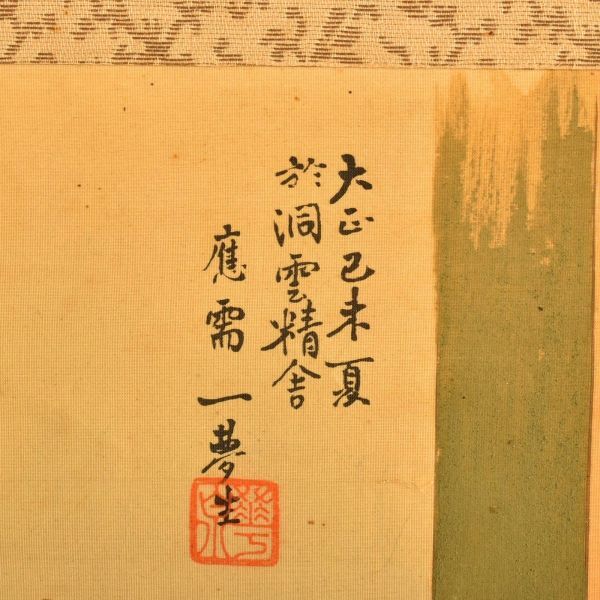 大正己未夏
於洞雲精舍
應需 一夢生